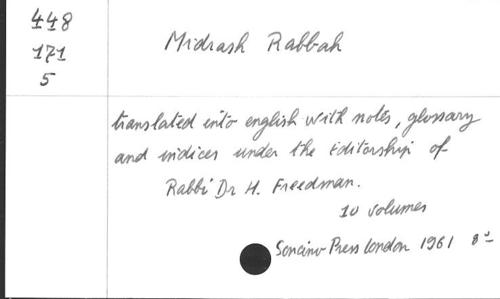 448
171
5
Midrash Rabbah
translated into english with notes, glossary
and indices under the Editorship of
Rabbi Dr H. Freedman.
10 volumes
Soncino Press London 1961 8º